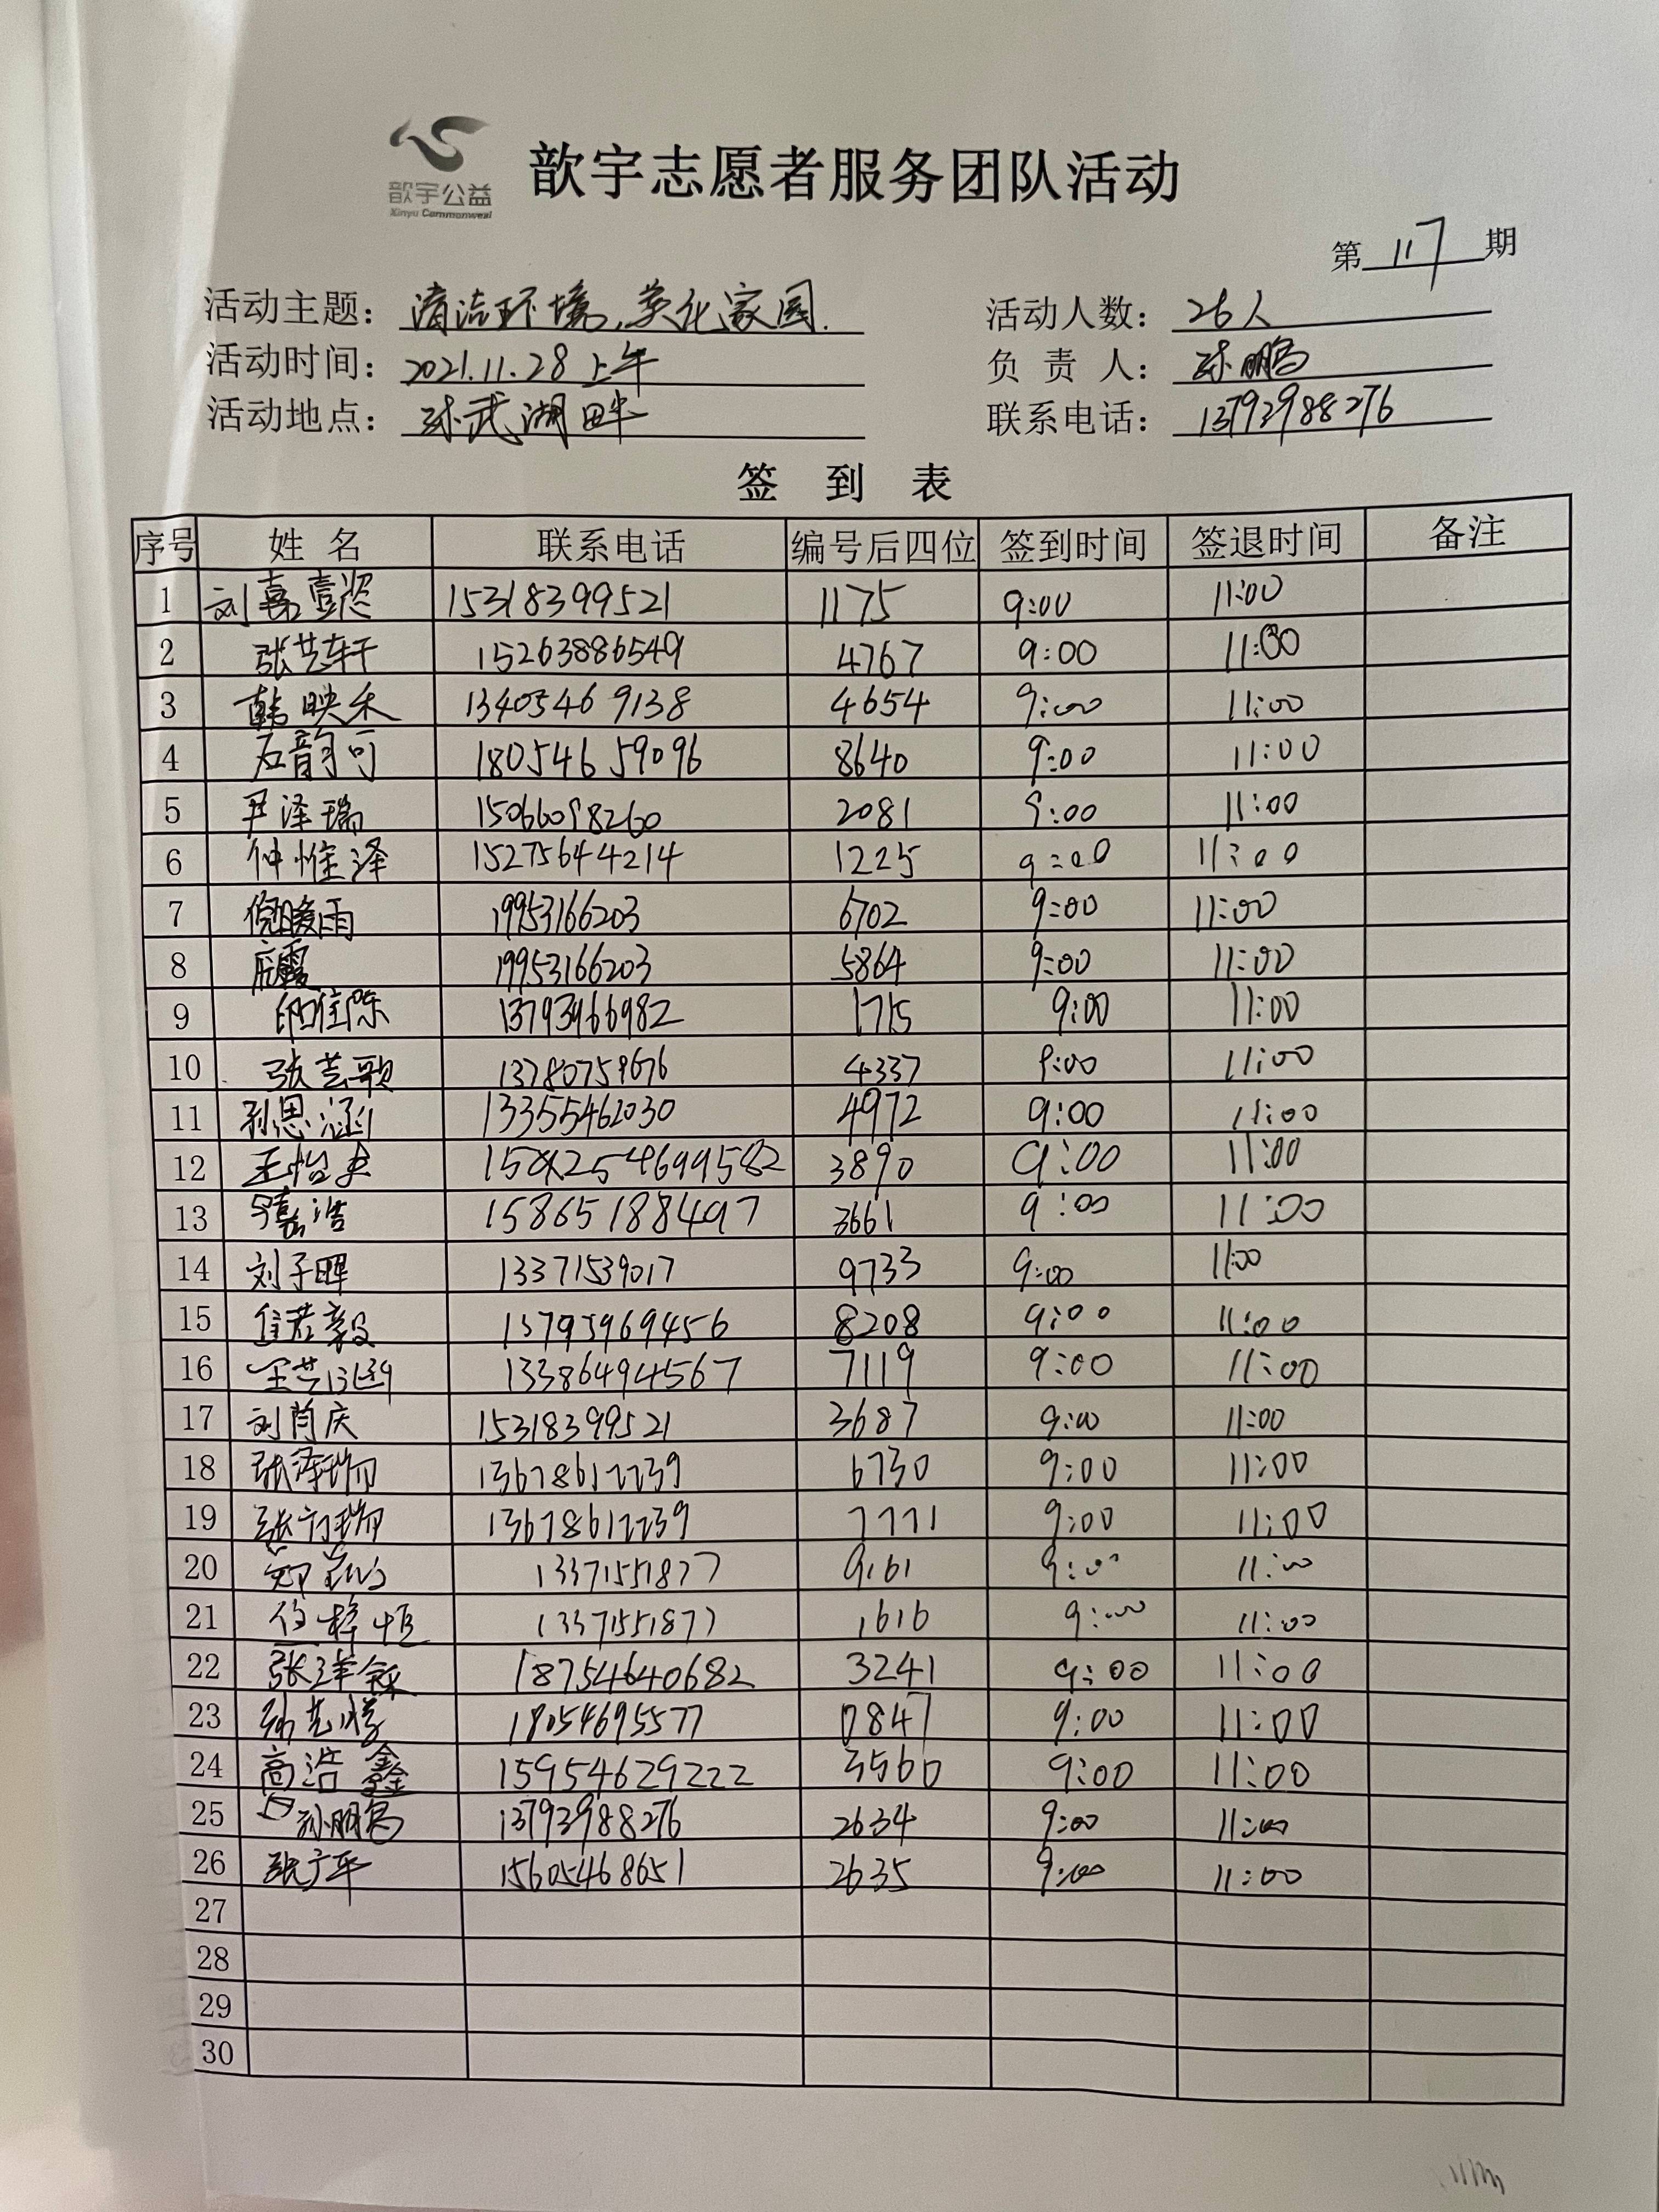 歆宇公益
Xinyu Commonweal
歆宇志愿者服务团队活动
第 117 期
活动主题：清洁环境，美化家园.
活动人数：26人
活动时间：2021.11.28上午
负责人：孙鹏
活动地点：孙武湖畔
联系电话：13793988276
签到表
序号 姓名 联系电话 编号后四位 签到时间 签退时间 备注
1 刘嘉 15318399521 1175 9:00 11:00
2 张艺轩 15263886549 4767 9:00 11:00
3 韩映禾 13405469138 4654 9:00 11:00
4 石韵可 18054659096 8640 9:00 11:00
5 尹泽瑞 15066098260 2081 9:00 11:00
6 仲惟泽 15275644214 1225 9:00 11:00
7 倪暖雨 19953166203 6702 9:00 11:00
8 19953166203 5864 9:00 11:00
9 13793966982 1715 9:00 11:00
10 张艺歌 13780759676 4337 9:00 11:00
11 孙思涵 13355462030 4972 9:00 11:00
12 王怡 3890 9:00 11:00
13 嘉浩 15865188497 3661 9:00 11:00
14 刘子晖 13371539017 9733 9:00 11:00
15 崔若毅 13793969456 8208 9:00 11:00
16 王艺 13386494567 7119 9:00 11:00
17 刘肖庆 15318399521 3687 9:00 11:00
18 张泽 13678612239 6730 9:00 11:00
19 张 13678612239 7771 9:00 11:00
20 9161 9:00 11:00
21 梓恒 1616 9:00 11:00
22 张洋 18754640682 3241 9:00 11:00
23 18054695577 0847 9:00 11:00
24 高浩鑫 15954629222 3560 9:00 11:00
25 孙鹏 13793988276 2634 9:00 11:00
26 张广军 15605468651 2635 9:00 11:00
27
28
29
30